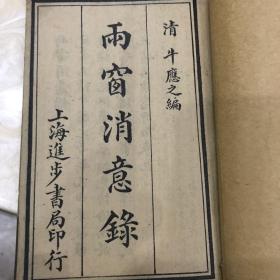 清牛應之編
雨窗消意錄
上海進步書局印行